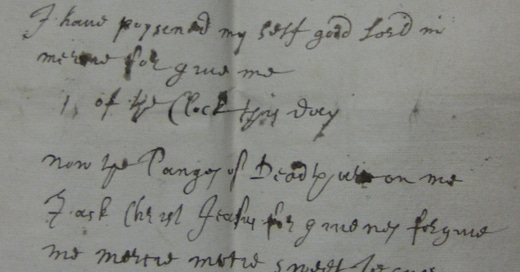 I have poysened my self good Lord in
mercie for give me
1 of the Clock this day
now the Panges of Death are on me
I ask Christ Jesus for givenes forgive
me mercie mercie sweet